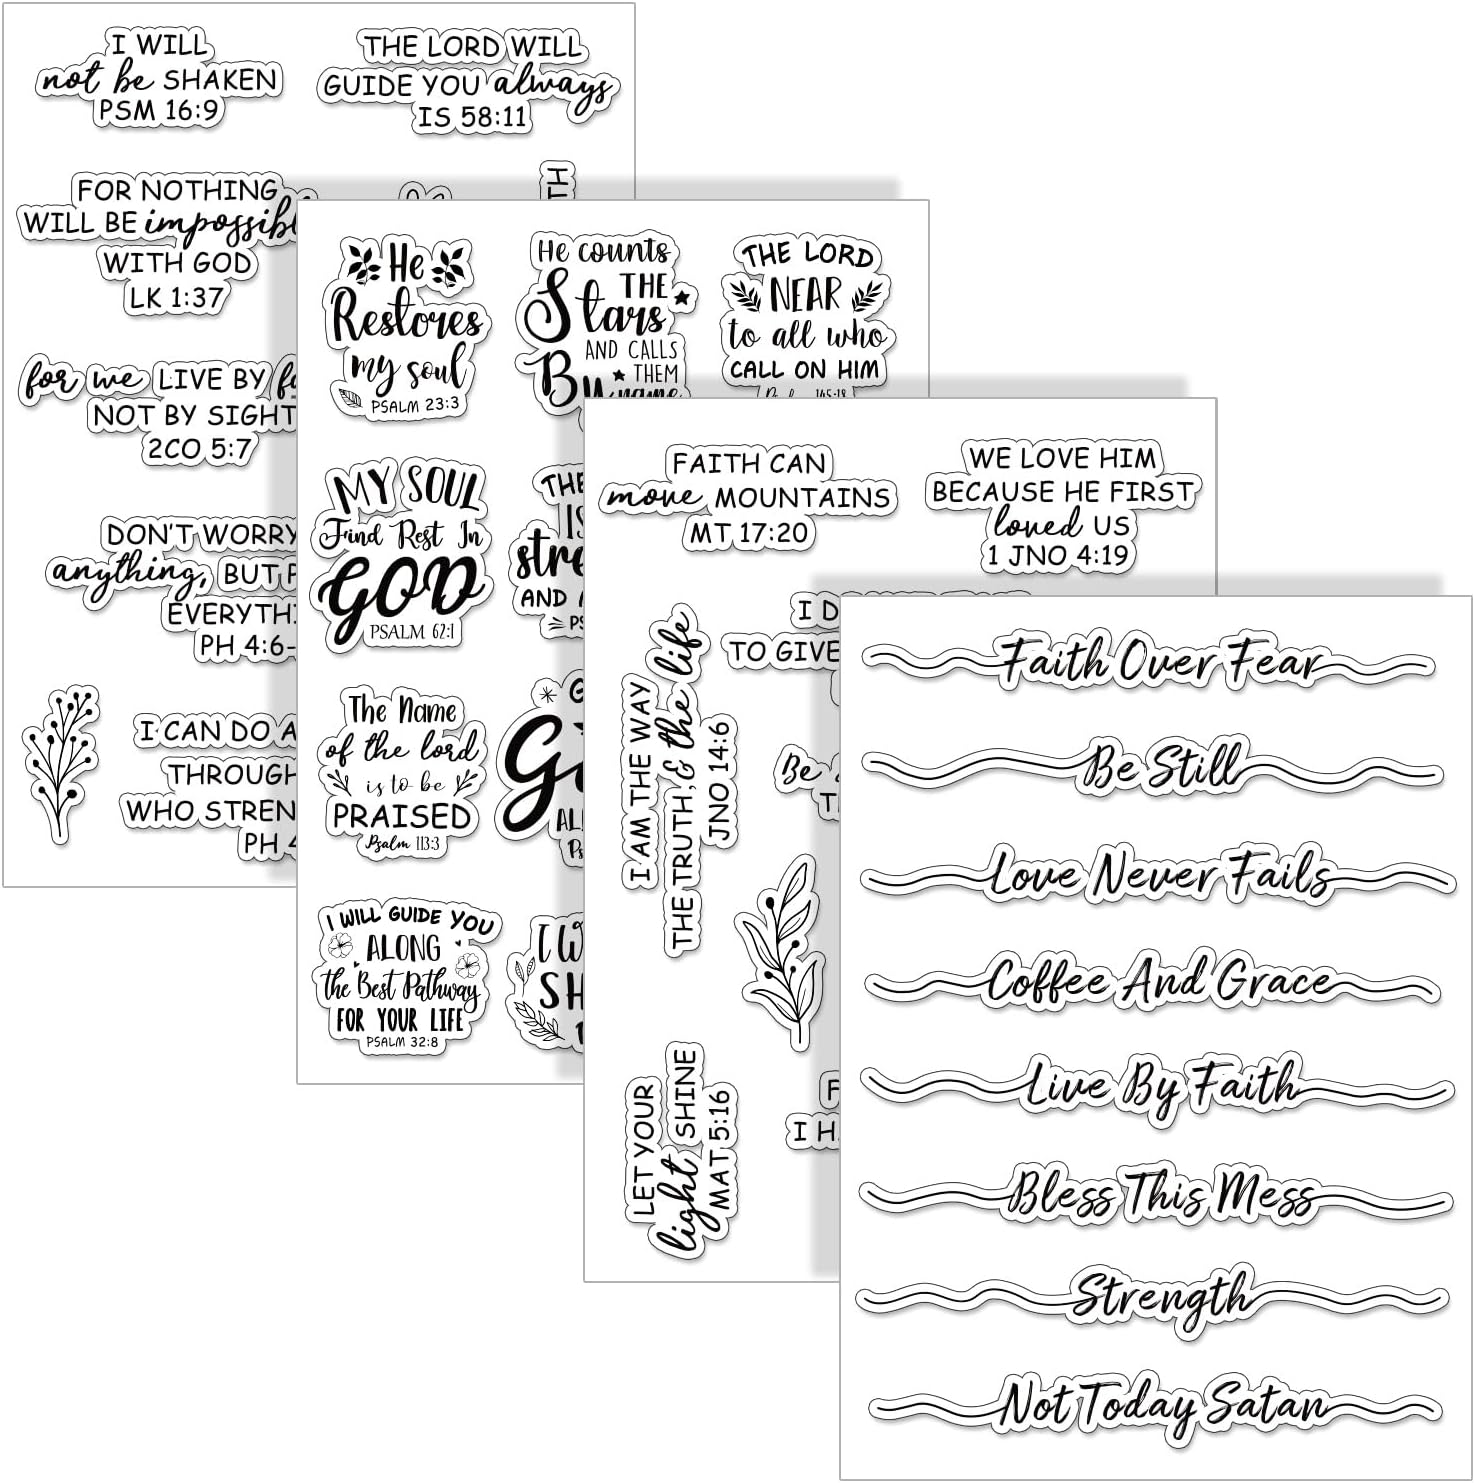 I WILL
not be SHAKEN
PSM 16:9
THE LORD WILL
GUIDE YOU always
IS 58:11
FOR NOTHING
WILL BE impossibl
WITH GOD
LK 1:37
TH
for we LIVE BY
NOT BY SIGHT
2CO 5:7
DON'T WORRY
anything, BUT
EVERYTHI
PH 4:6-
I CAN DO A
THROUGH
WHO STREN
PH 4
He
Restores
my soul
PSALM 23:3
He counts
THE
Stars
AND CALLS
THEM
By name
THE LORD
NEAR
to all who
CALL ON HIM
Psalm 145:18
MY SOUL
Find Rest In
GOD
PSALM 62:1
THE
IS
stre
AND
PS
The Name
of the lord
is to be
PRAISED
Psalm 113:3
G
G
AL
Ps
I WILL GUIDE YOU
ALONG
the Best Pathway
FOR YOUR LIFE
PSALM 32:8
I W
SH
1
FAITH CAN
move MOUNTAINS
MT 17:20
WE LOVE HIM
BECAUSE HE FIRST
loved US
1 JNO 4:19
I AM THE WAY
THE TRUTH, & the life
JNO 14:6
I D
TO GIVE
Be
T
LET YOUR
light SHINE
MAT 5:16
F
I H
Faith Over Fear
Be Still
Love Never Fails
Coffee And Grace
Live By Faith
Bless This Mess
Strength
Not Today Satan